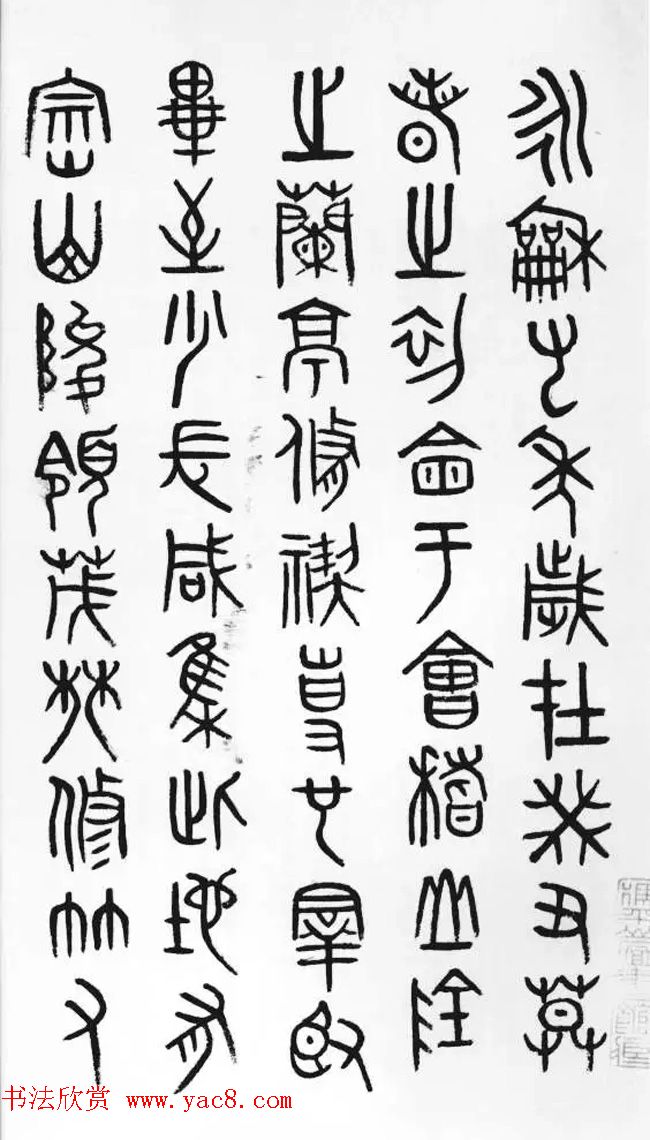 永龢九年歲在癸丑莫
春之初會于會稽山陰
之蘭亭修禊事也羣臤
畢至少長咸集此地有
崇山峻領茂林修竹又
书法欣赏 www.yac8.com